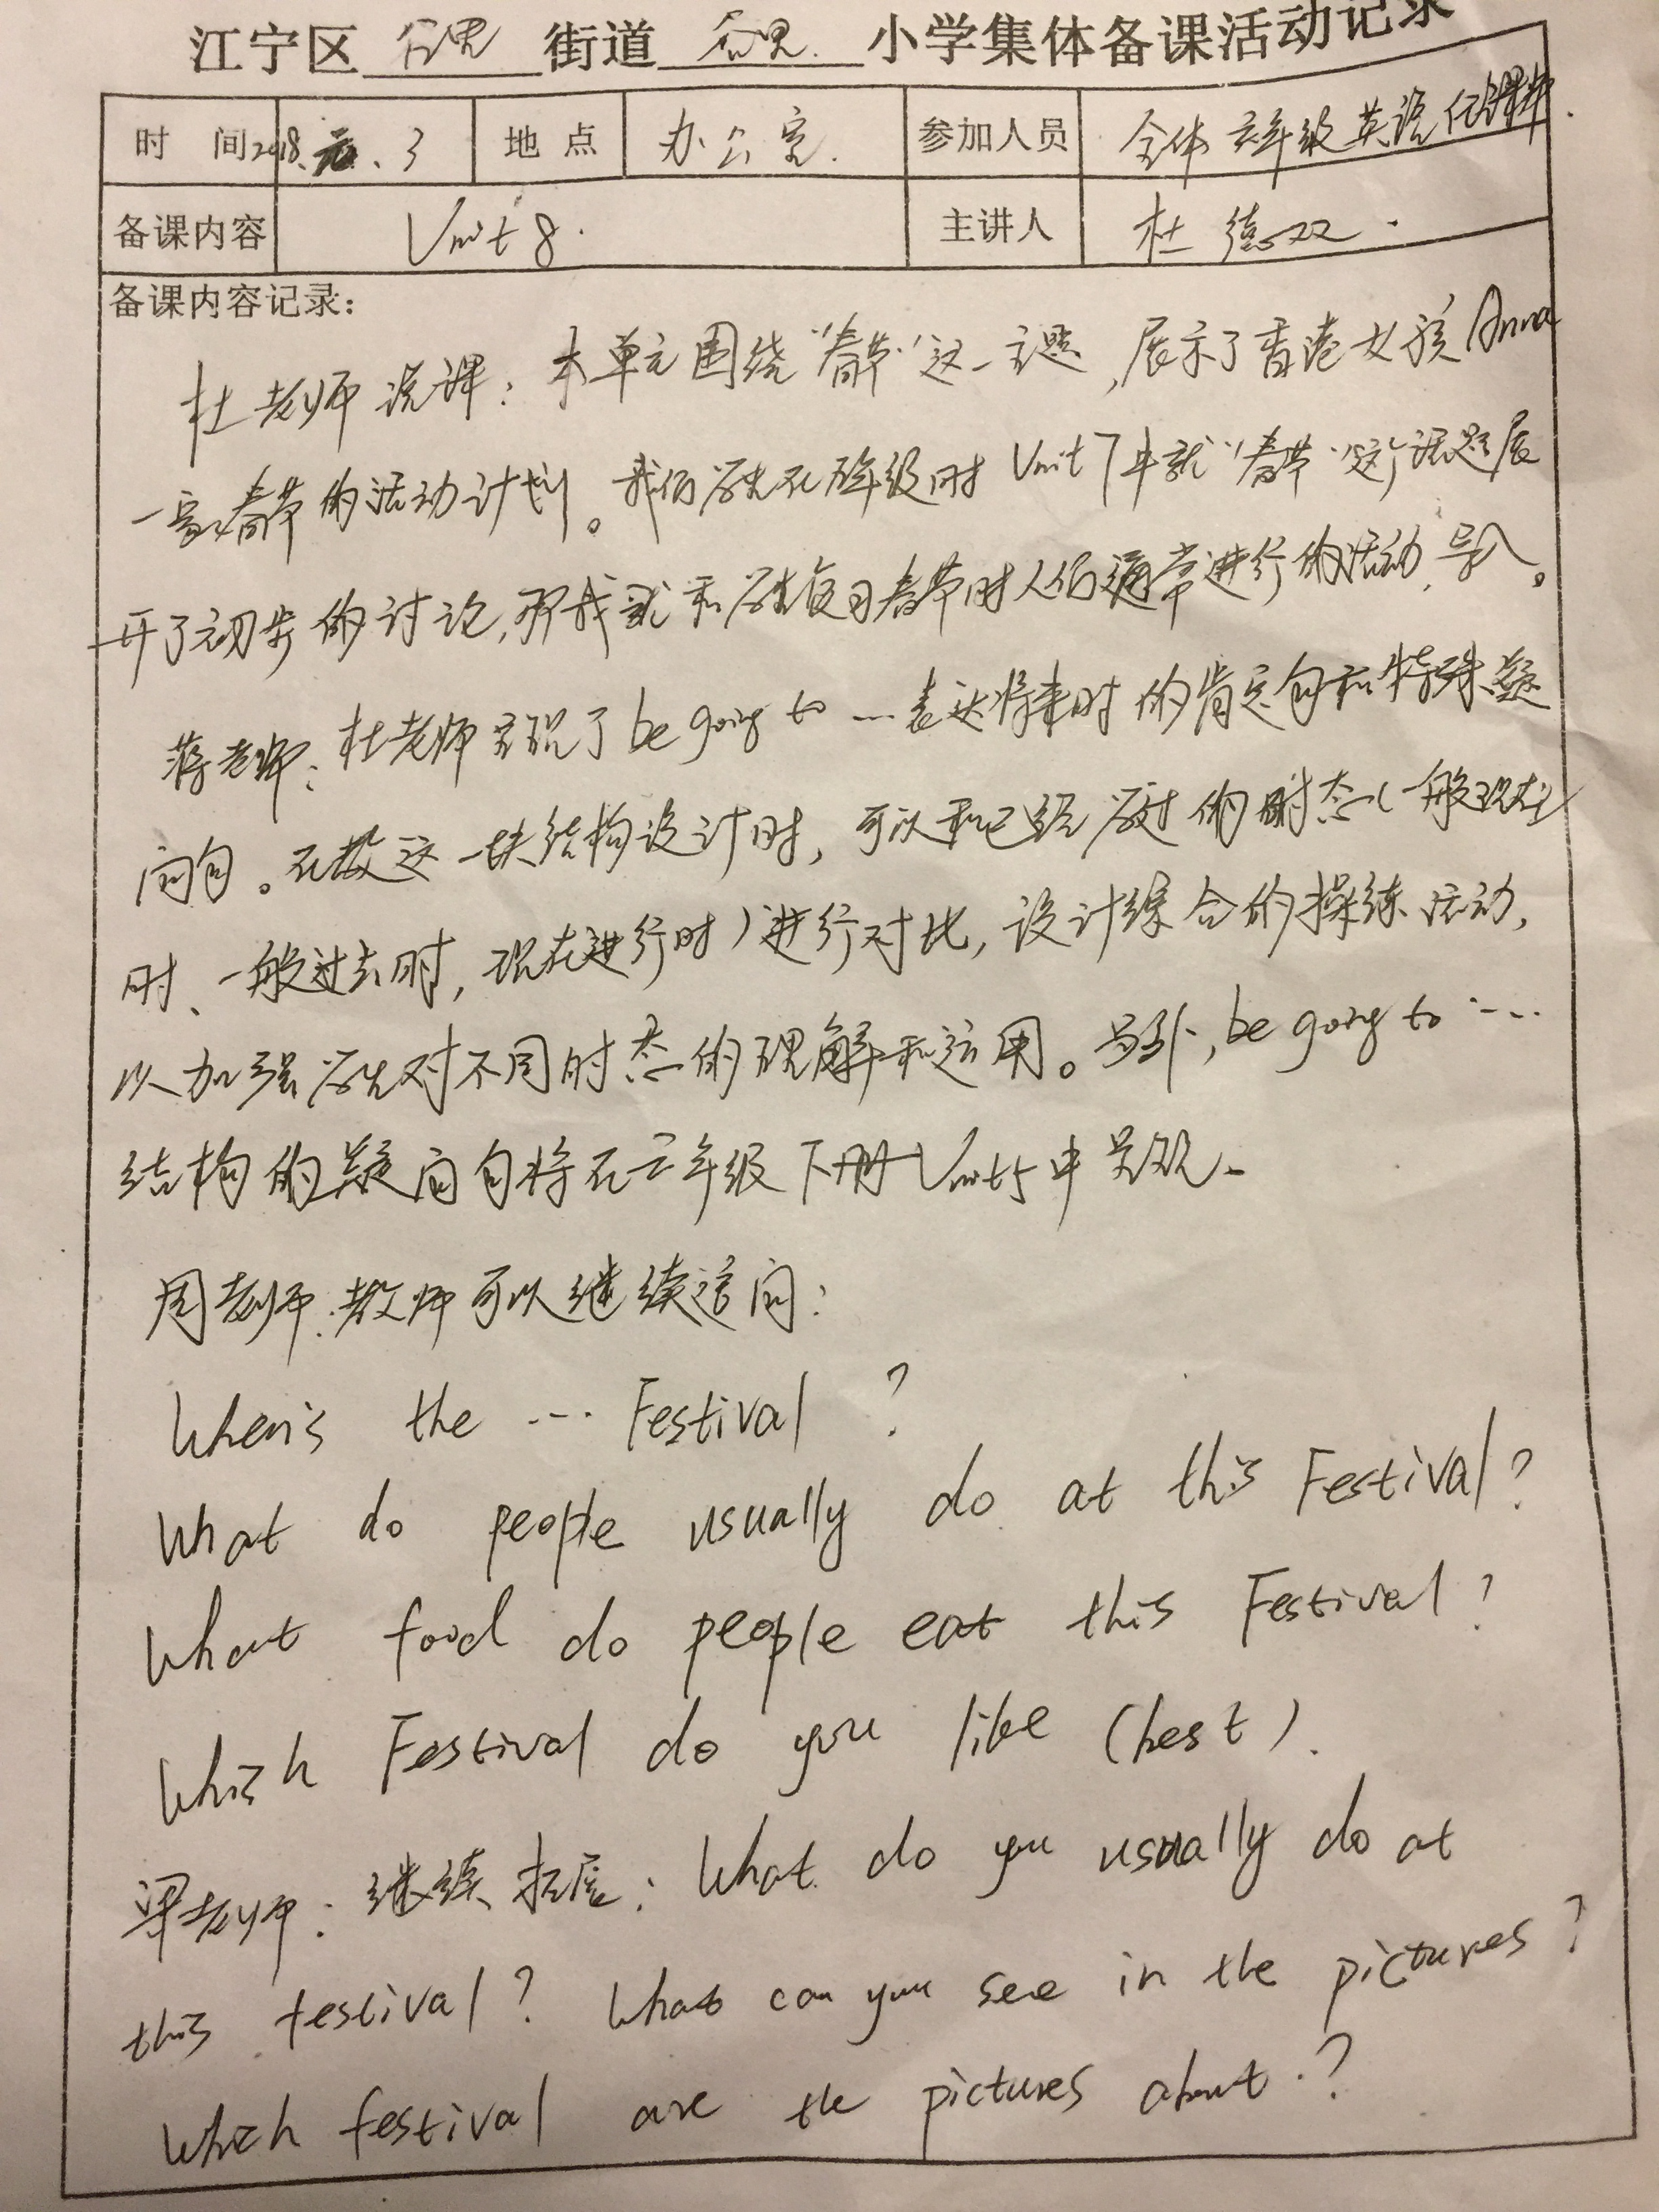 江宁区 谷里 街道 谷里 小学集体备课活动记录
时 间 2018. . 3 地 点 办公室. 参加人员 全体六年级英语任课教师.
备课内容 Unit 8. 主讲人 杜德双.
备课内容记录:
杜老师说课:本单元围绕“春节”这一主题,展示了香港女孩Anna
一家春节的活动计划。我们学生在五年级时Unit 7中就“春节”这个话题展
开了初步的讨论,所以我就和学生复习春节时人们通常进行的活动,导入。
蒋老师:杜老师呈现了be going to …表达将来时的肯定句和特殊疑
问句。在教这一块结构设计时,可以和已经学过的时态(一般现在
时、一般过去时,现在进行时)进行对比,设计综合的操练活动,
以加强学生对不同时态的理解和运用。另外,be going to …
结构的疑问句将在六年级下册Unit5中呈现.
周老师:教师可以继续追问:
When's the … Festival ?
What do people usually do at this Festival?
What food do people eat this Festival?
Which Festival do you like (best).
梁老师:继续拓展:What do you usually do at
this festival? What can you see in the pictures?
Which festival are the pictures about.?